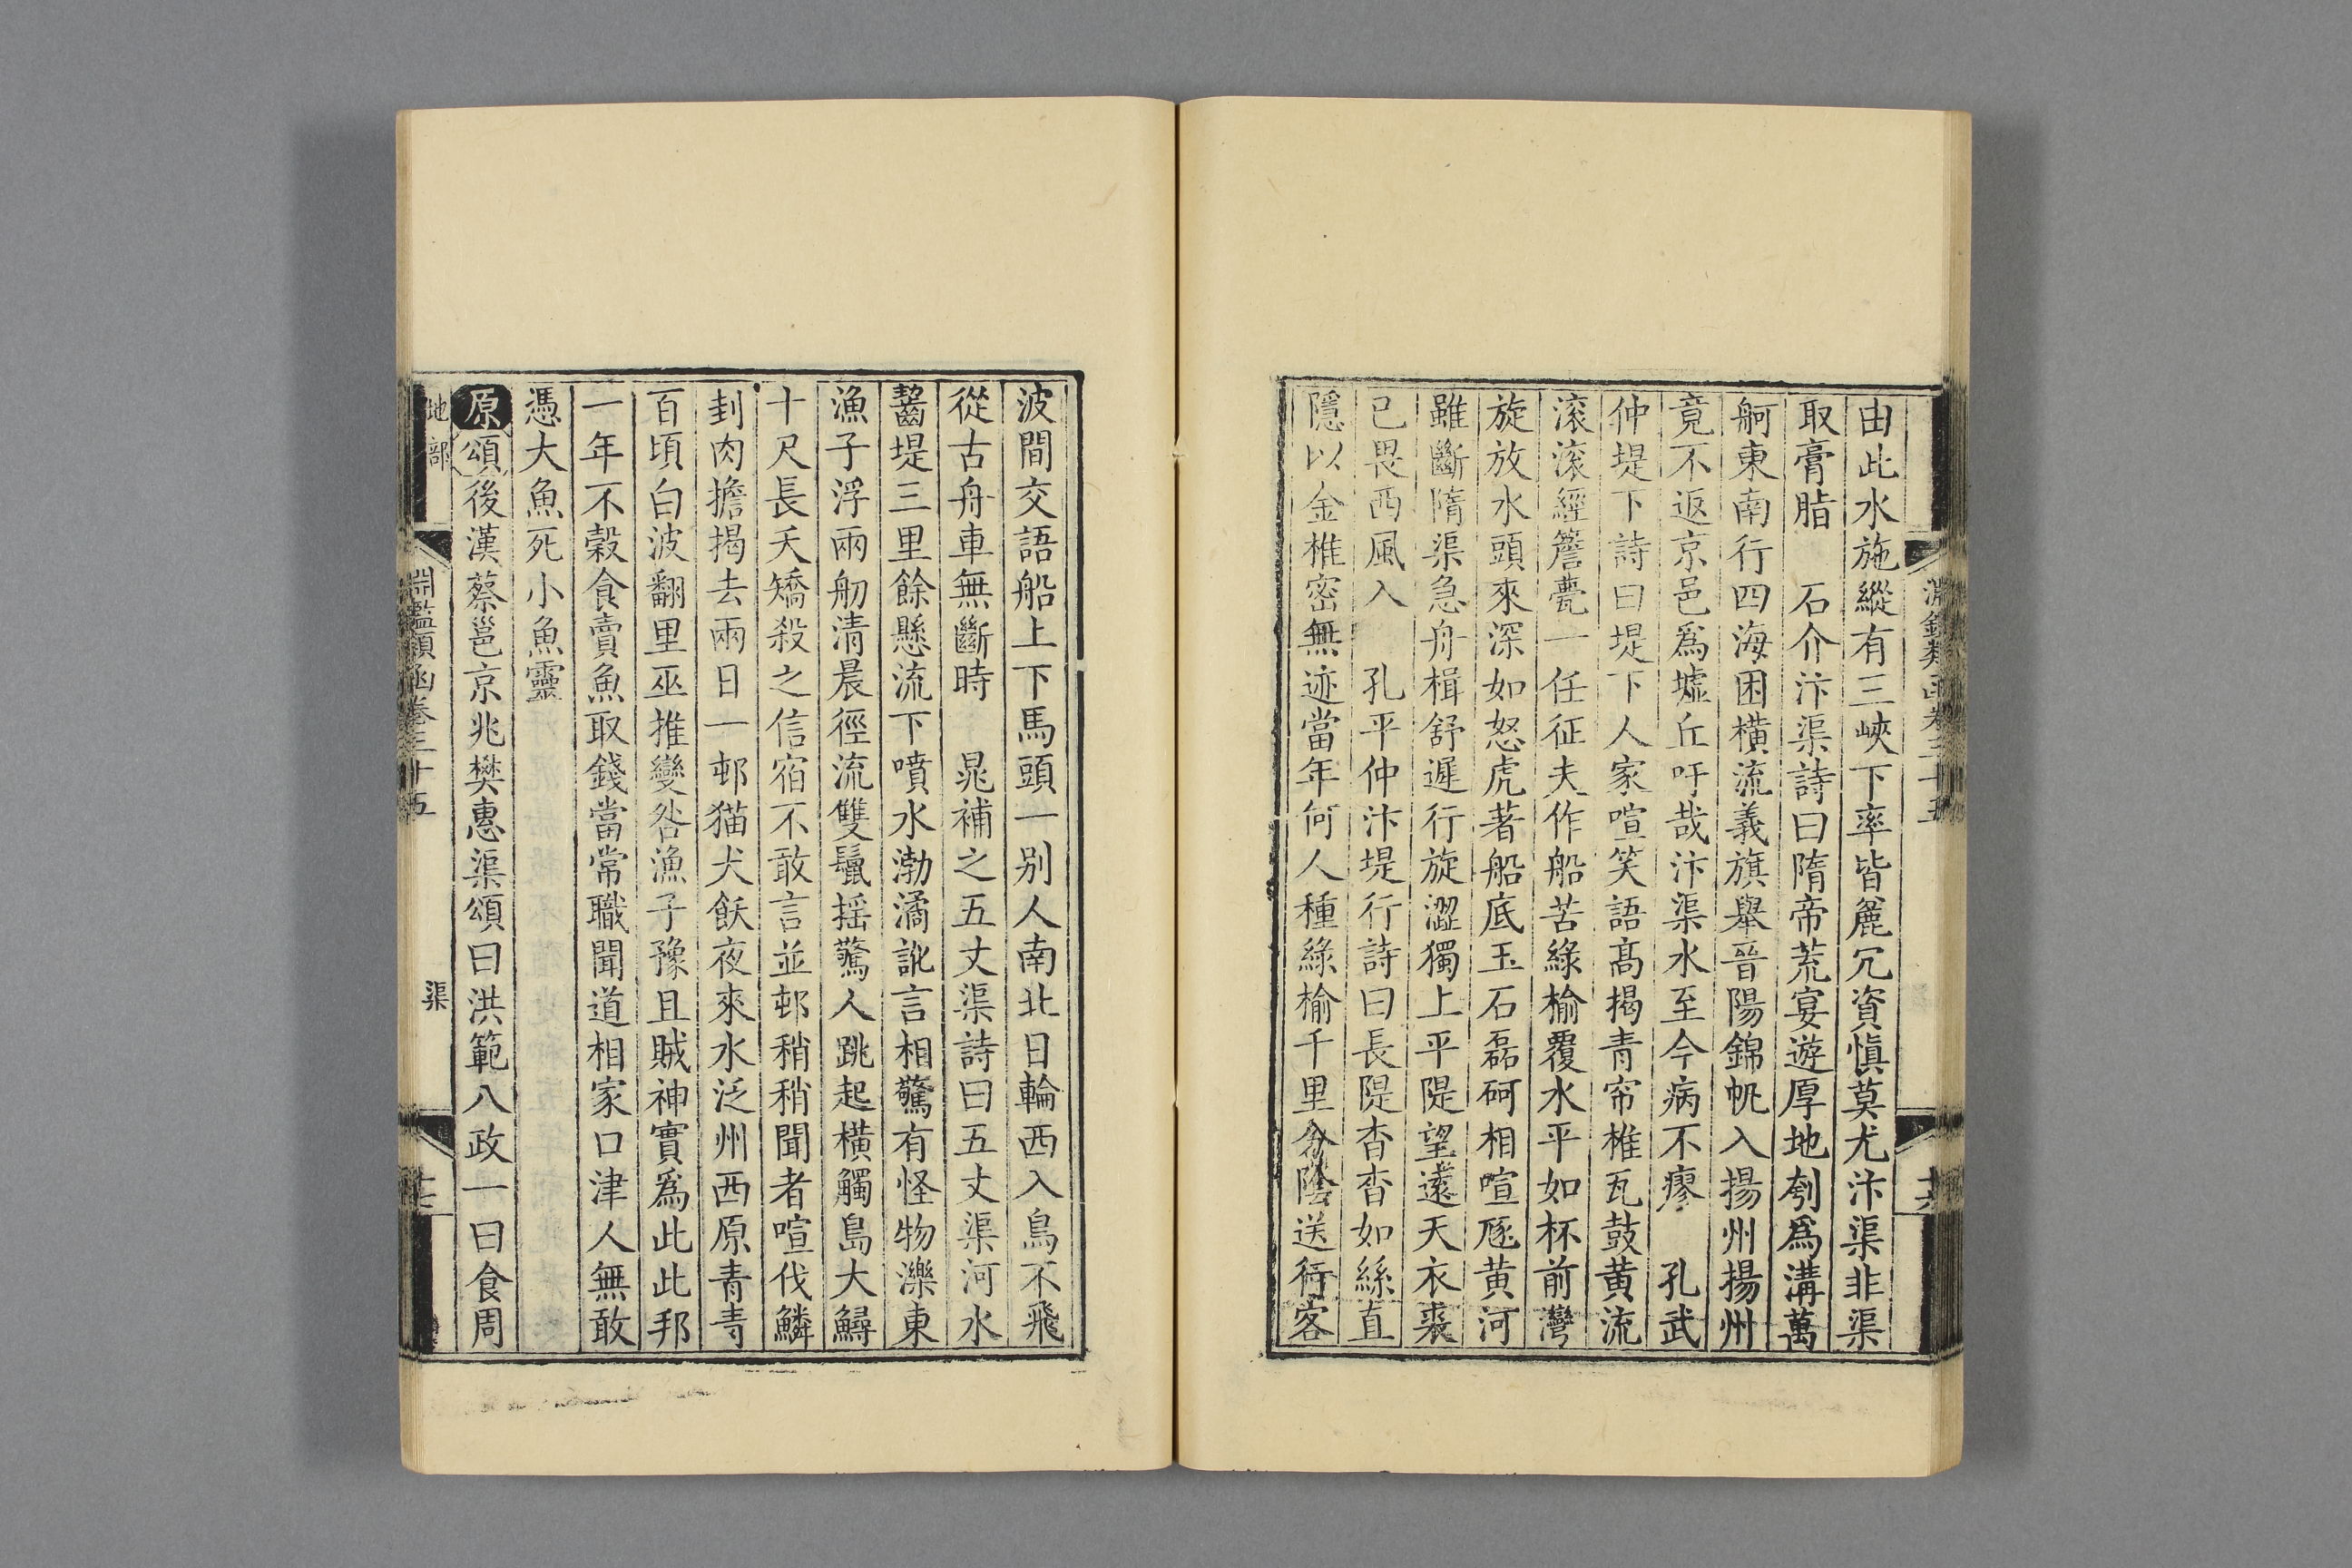 由此水施縱有三峽下率皆麄冗資愼莫尤汴渠非渠
取膏脂　石介汴渠詩曰隋帝荒宴遊厚地刳爲溝萬
舸東南行四海困橫流義旗舉晉陽錦帆入揚州揚州
竟不返京邑爲墟丘吁哉汴渠水至今病不瘳　孔武
仲堤下詩曰堤下人家喧笑語髙揭青帘椎瓦鼓黄流
滚滚經簷甍一任征夫作船苦綠榆覆水平如杯前灣
旋放水頭來深如怒虎著船底玉石磊砢相喧豗黄河
雖斷隋渠急舟楫舒遲行旋澀獨上平隄望遠天衣裘
已畏西風入　孔平仲汴堤行詩曰長隄杳杳如絲直
隱以金椎密無迹當年何人種綠榆千里分陰送行客
波間交語船上下馬頭一别人南北日輪西入鳥不飛
從古舟車無斷時　晁補之五丈渠詩曰五丈渠河水
齧堤三里餘懸流下噴水渤潏訛言相驚有怪物濼東
漁子浮兩舠清晨徑流雙鬛摇驚人跳起橫觸島大鱘
十尺長夭矯殺之信宿不敢言並邨稍稍聞者喧伐鱗
刲肉擔揭去兩日一邨猫犬飫夜來水泛州西原青青
百頃白波翻里巫推變咎漁子豫且賊神實爲此此邦
一年不穀食賣魚取錢當常職聞道相家口津人無敢
憑大魚死小魚靈
原頌後漢蔡邕京兆樊惠渠頌曰洪範八政一曰食周
地部
淵鑑類函卷三十五
渠
十七
淵鑑類函卷三十五
十六